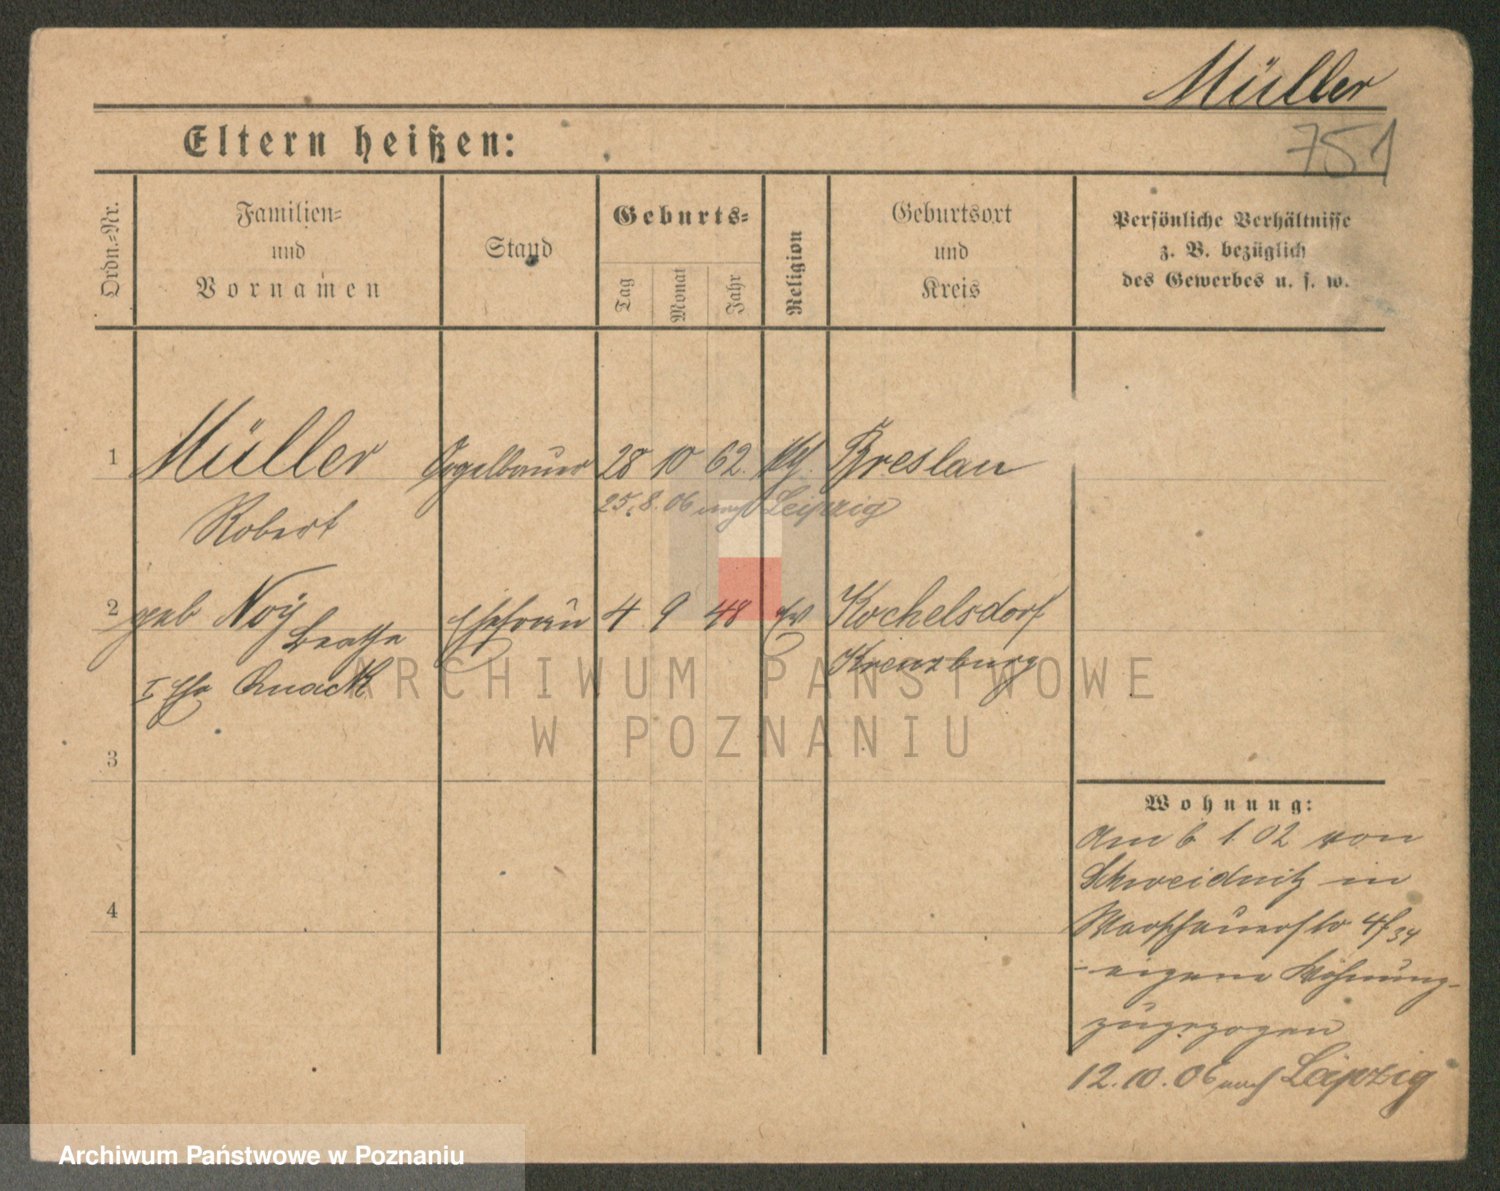 Müller
751
Eltern heißen:
Ordn.=Nr.
Familien=
und
Vornamen
Stand
Geburts=
Tag
Monat
Jahr
Religion
Geburtsort
und
Kreis
Persönliche Verhältnisse
z. B. bezüglich
des Gewerbes u. s. w.
1 Müller Orgelbauer 28 10 62. Breslau
25.8.06 nach Leipzig
Robert
2 geb Noÿ Ehefrau 4 9 48 ev Kochelsdorf
Beathe
Kreuzburg
I Ehe Quack
3
4
Wohnung:
Am 6 1. 02 von
Schweidnitz in
Warschauerstr 4/34
- eigene Wohnung -
zugezogen
12.10.06 nach Leipzig
ARCHIWUM PAŃSTWOWE
W POZNANIU
Archiwum Państwowe w Poznaniu